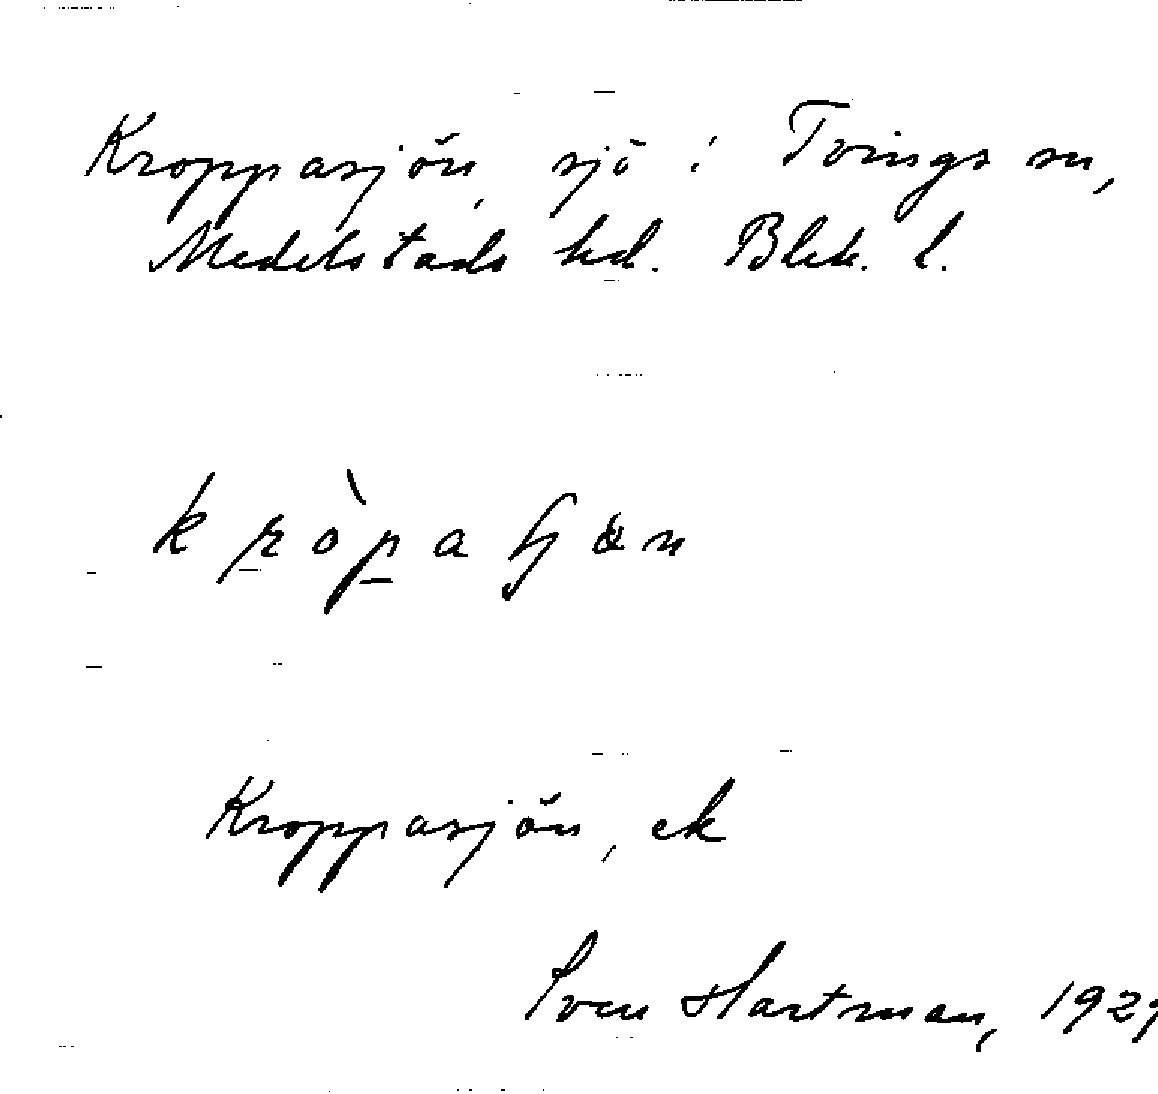 Kroppasjön, sjö i Tvings sn,
Medelstads hd. Blek. l.
Kroppasjön, ek
Sven Hartman, 1929